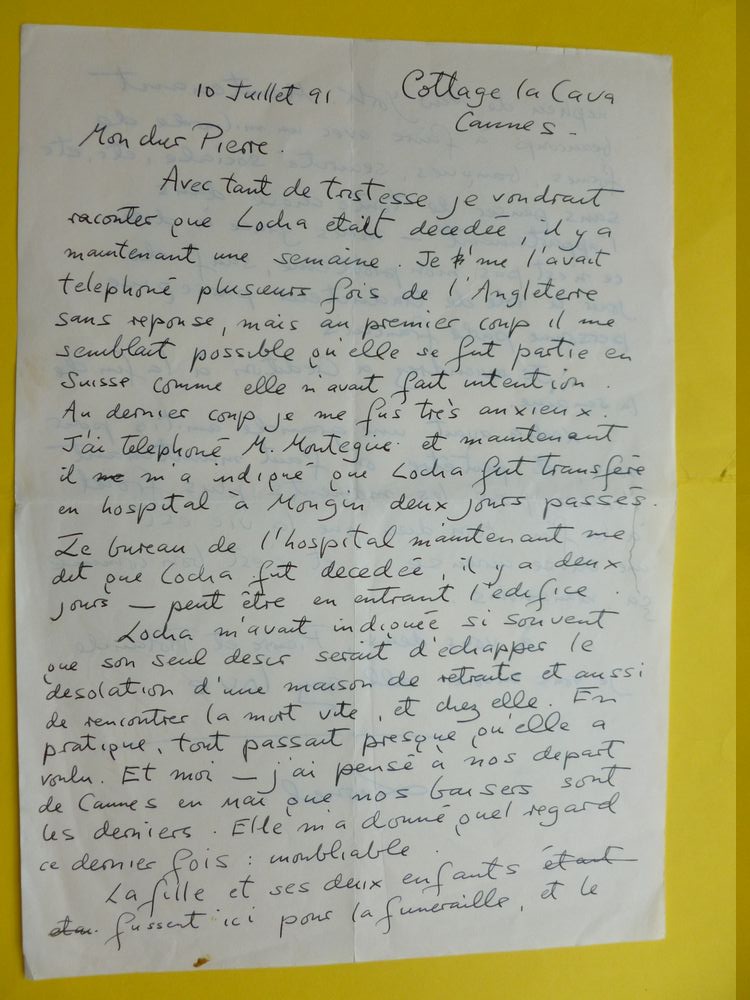 10 Juillet 91
Cottage la Cava
Cannes -
Mon cher Pierre.
Avec tant de tristesse je voudrait
raconter que Locha etait decedée, il y a
maintenant une semaine. Je me l'avait
telephoné plusieurs fois de l'Angleterre
sans reponse, mais au premier coup il me
semblait possible qu'elle se fut partie en
Suisse comme elle n'avait fait intention.
Au dernier coup je me fus très anxieux.
J'ai telephoné M. Montegue. et maintenant
il me m'a indiqué que Locha fut transfère
en hospital à Mongin deux jours passés.
Le bureau de l'hospital maintenant me
dit que Locha fut decedée, il y a deux
jours — peut être en entrant l'edifice.
Locha m'avait indiquée si souvent
que son seul desir serait d'echapper le
desolation d'une maison de retraite et aussi
de rencontrer la mort vite, et chez elle. En
pratique, tout passait presque qu'elle a
voulu. Et moi — j'ai pensé à nos depart
de Cannes en mai que nos baisers sont
les derniers. Elle m'a donné quel regard
ce dernier fois : inoubliable.
La fille et ses deux enfants etant
etan. fussent ici pour la funeraille, et le